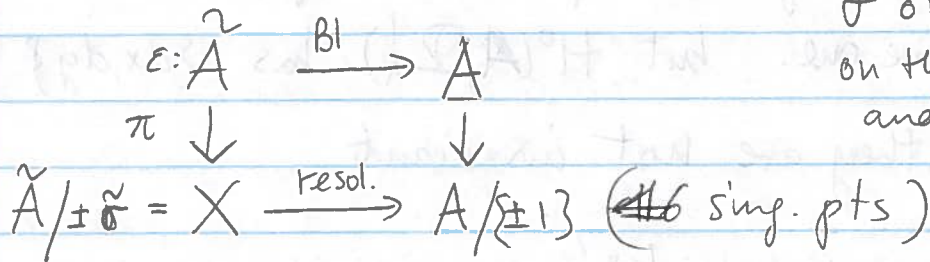 σ o
ε: Ã —Bl→ A
on th
π ↓ ↓
and
Ã/±σ̃ = X —resol.→ A/{±1} (16 sing. pts)